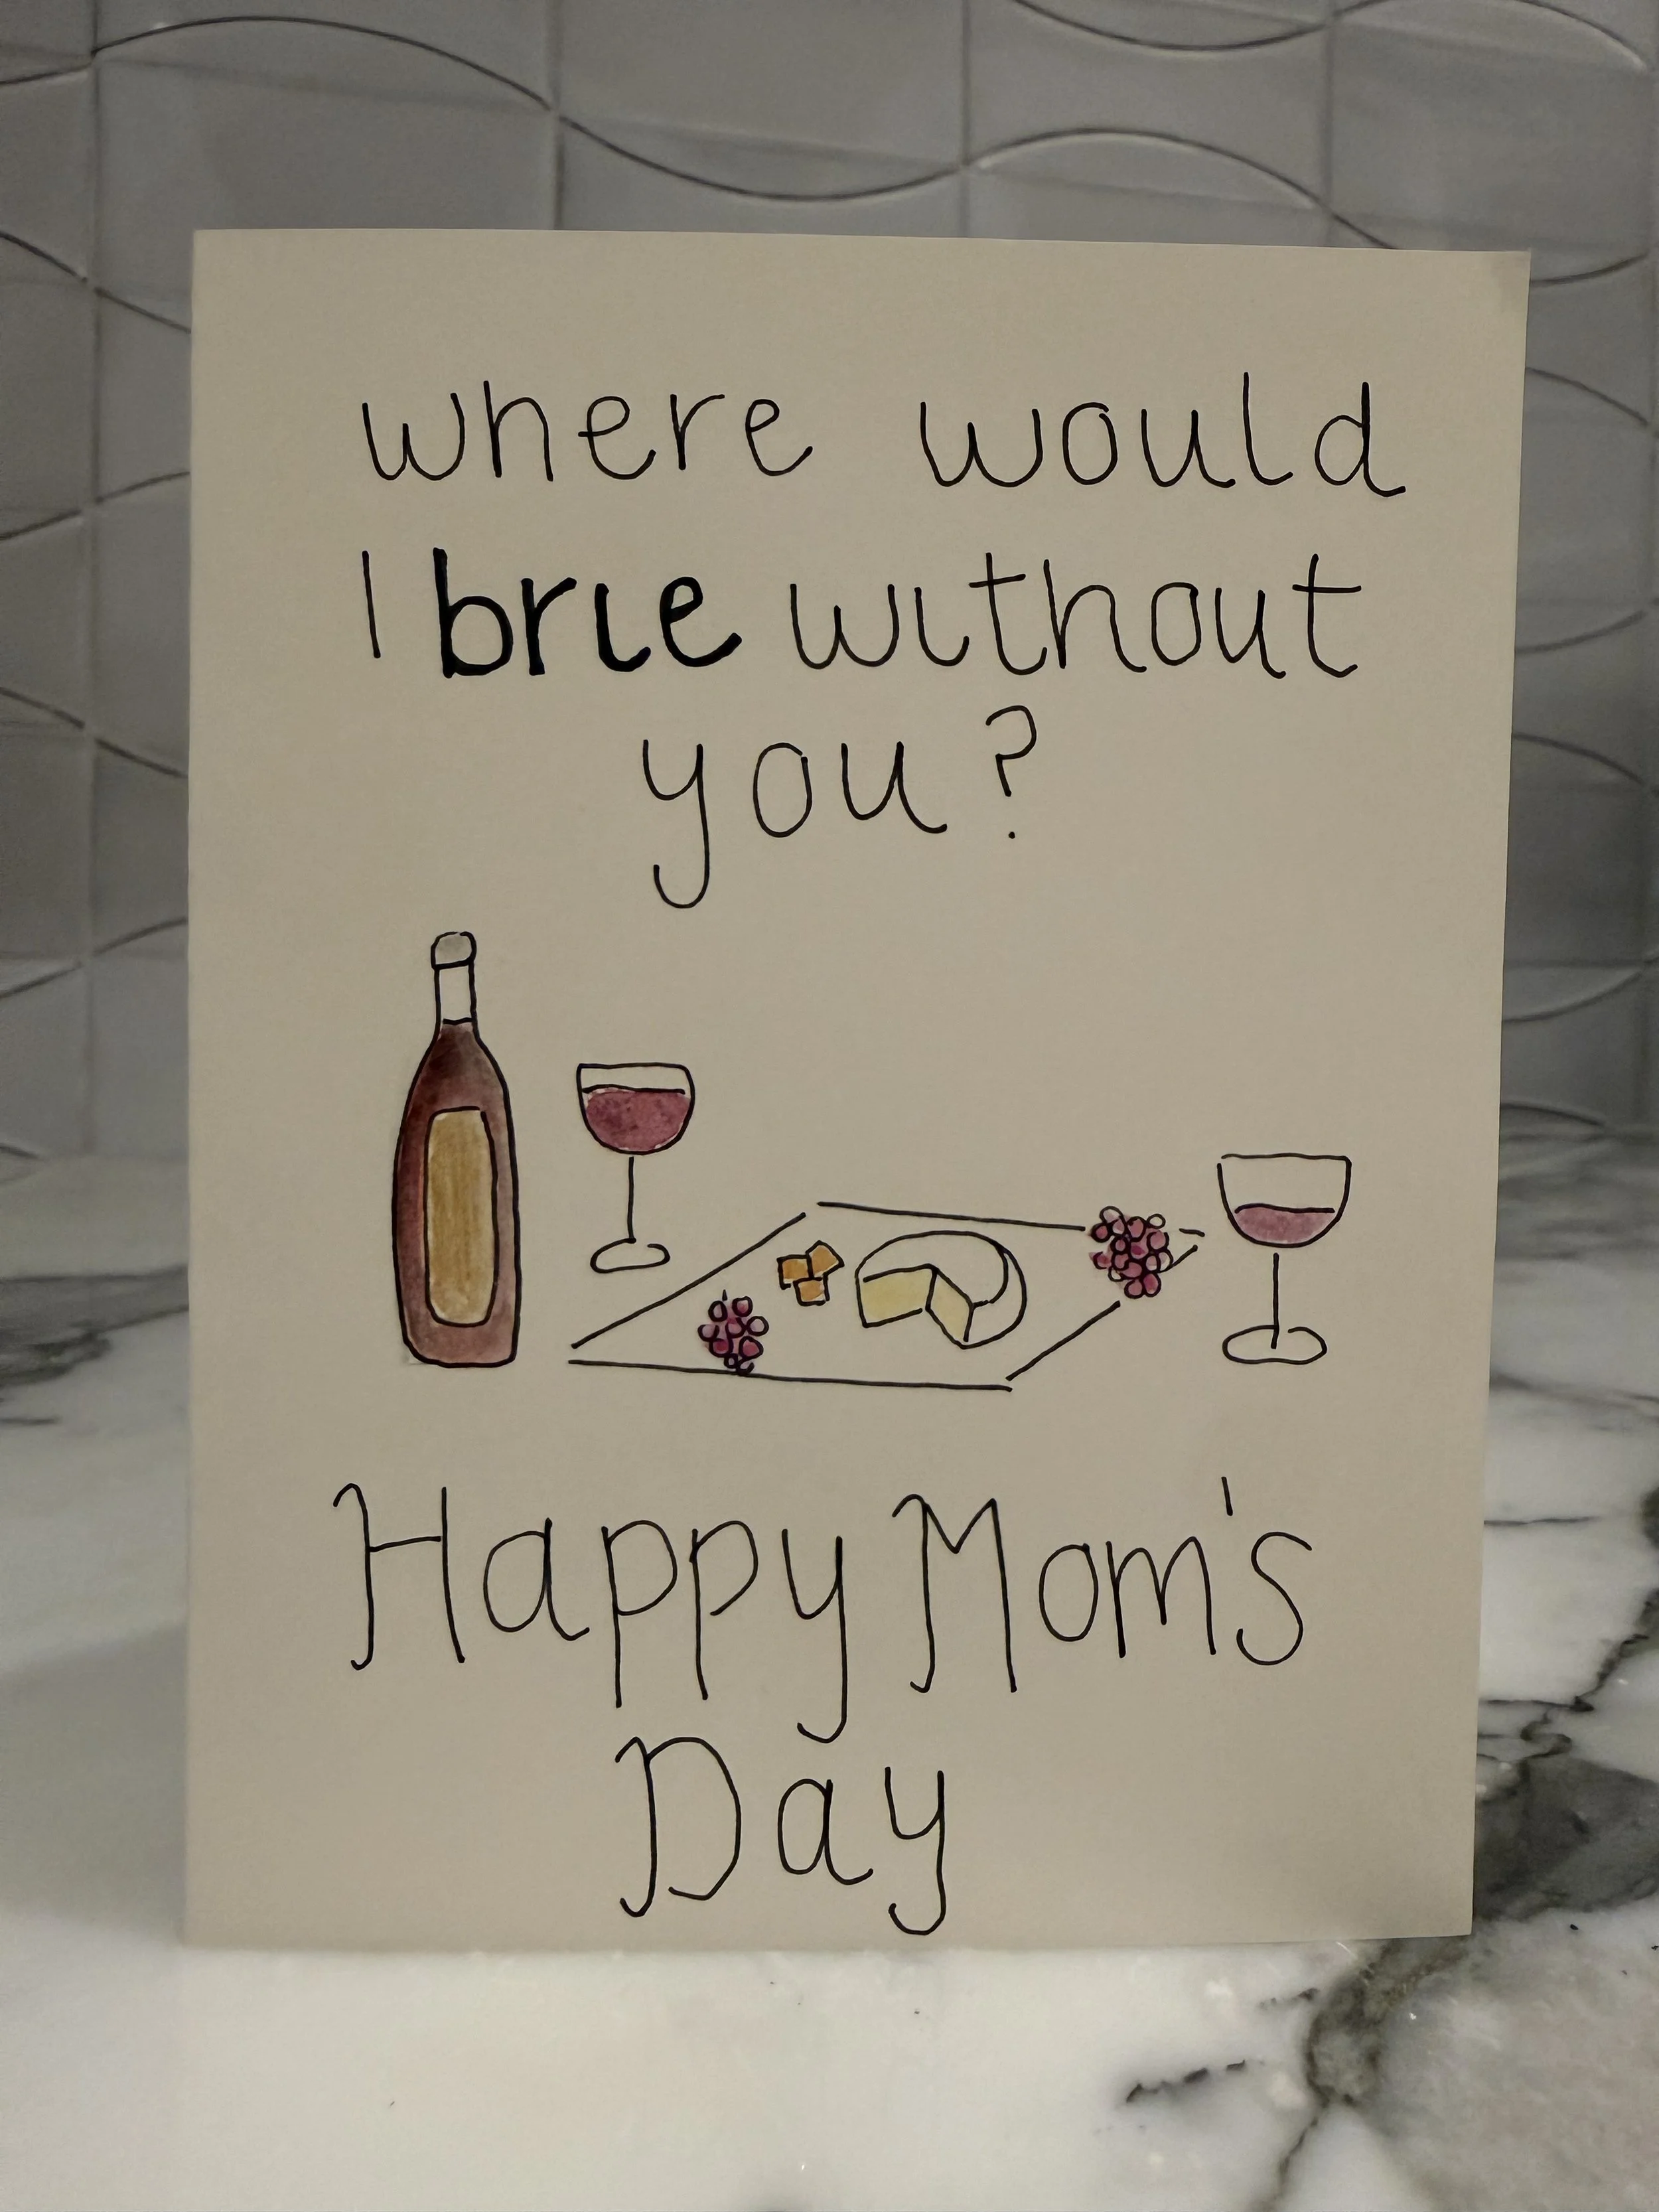 where would
I brie without
you?
Happy Mom's
Day